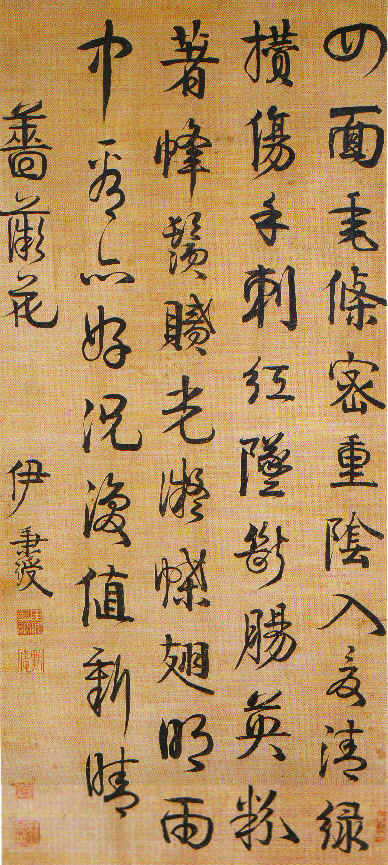 四面垂條密重陰入夏清綠
攢傷手刺紅墜斷腸英粉
著蜂鬚膩光凝蝶翅明雨
中看亦好況復值新晴
薔薇花 伊秉綬